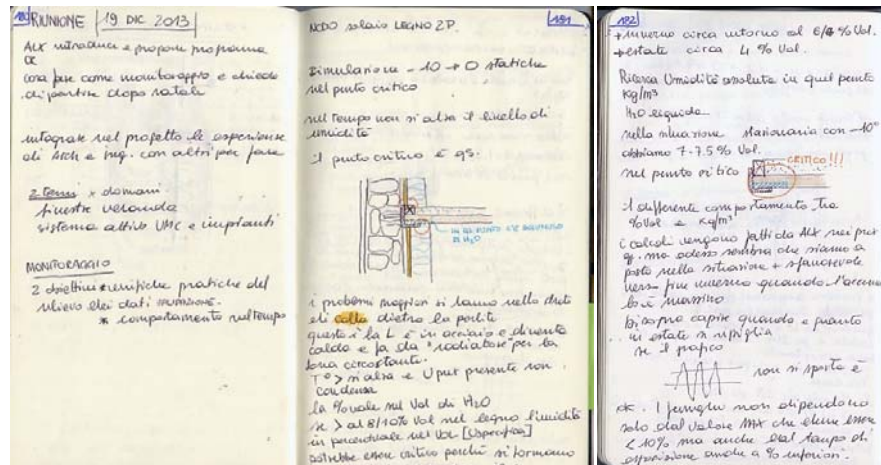 180 RIUNIONE 19 DIC 2013
ALX introduce e propone programma
cosa fare come monitoraggio e chiede
di partire dopo natale
integrare nel progetto le esperienze
di Arch e ing. con altri per fare
2 temi x domani
finestre veranda
sistema attivo VMC e impianti
MONITORAGGIO
2 obiettivi * verifiche pratiche del
rilievo dei dati
* comportamento nel tempo
NODO solaio LEGNO 2P. 181
simulazione -10 → 0 statiche
nel punto critico
nel tempo non si alza il livello di
umidità
il punto critico è qs:
DI H2O
i problemi maggiori si hanno nello strato
di colla dietro la parete
questo x la L è in acciaio e diventa
caldo e fa da "radiatore" per la
zona circostante.
T° > si alza e U pur presente non
condensa
la % vale nel Vol di H2O
se > al 8/10% Vol nel legno l'umidità
in percentuale nel Vol. [Uspecifica]
potrebbe essere critico perché si formano
182
+ inverno circa intorno al % Vol.
+ estate circa 4 % Vol.
Ricerca Umidità assoluta in quel punto
kg/m³
H2O liquida
nella situazione stazionaria con -10°
abbiamo 7-7.5% Vol.
nel punto critico
CRITICO!!!
il differente comportamento tra
% Vol e kg/m³
i calcoli vengono fatti da ALX nei pross
g. ma adesso sembra che siamo a
posto nella situazione + sfavorevole
verso fine inverno quando l'accumu
lo è massimo
bisogna capire quando e quanto
in estate si ripiglia
se il grafico
non si sposta è
ok. I funghi non dipendono
solo dal valore MAX che deve essere
< 10% ma anche dal tempo di
esposizione anche a % inferiori.